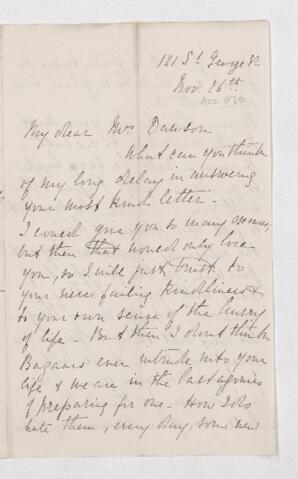 121 St. George St
Nov. 26th
My dear Mrs Dawson
What can you think
of my long delay in answering
your most kind letter -
I could give you so many excuses,
but then that would only bore
you, so I will just trust to
your never failing kindliness &
to your own sense of the hurry
of life - But then I dont think
Bazaars ever intrude into your
life & we are in the last agonies
of preparing for one - How I do
hate them, every day, some new